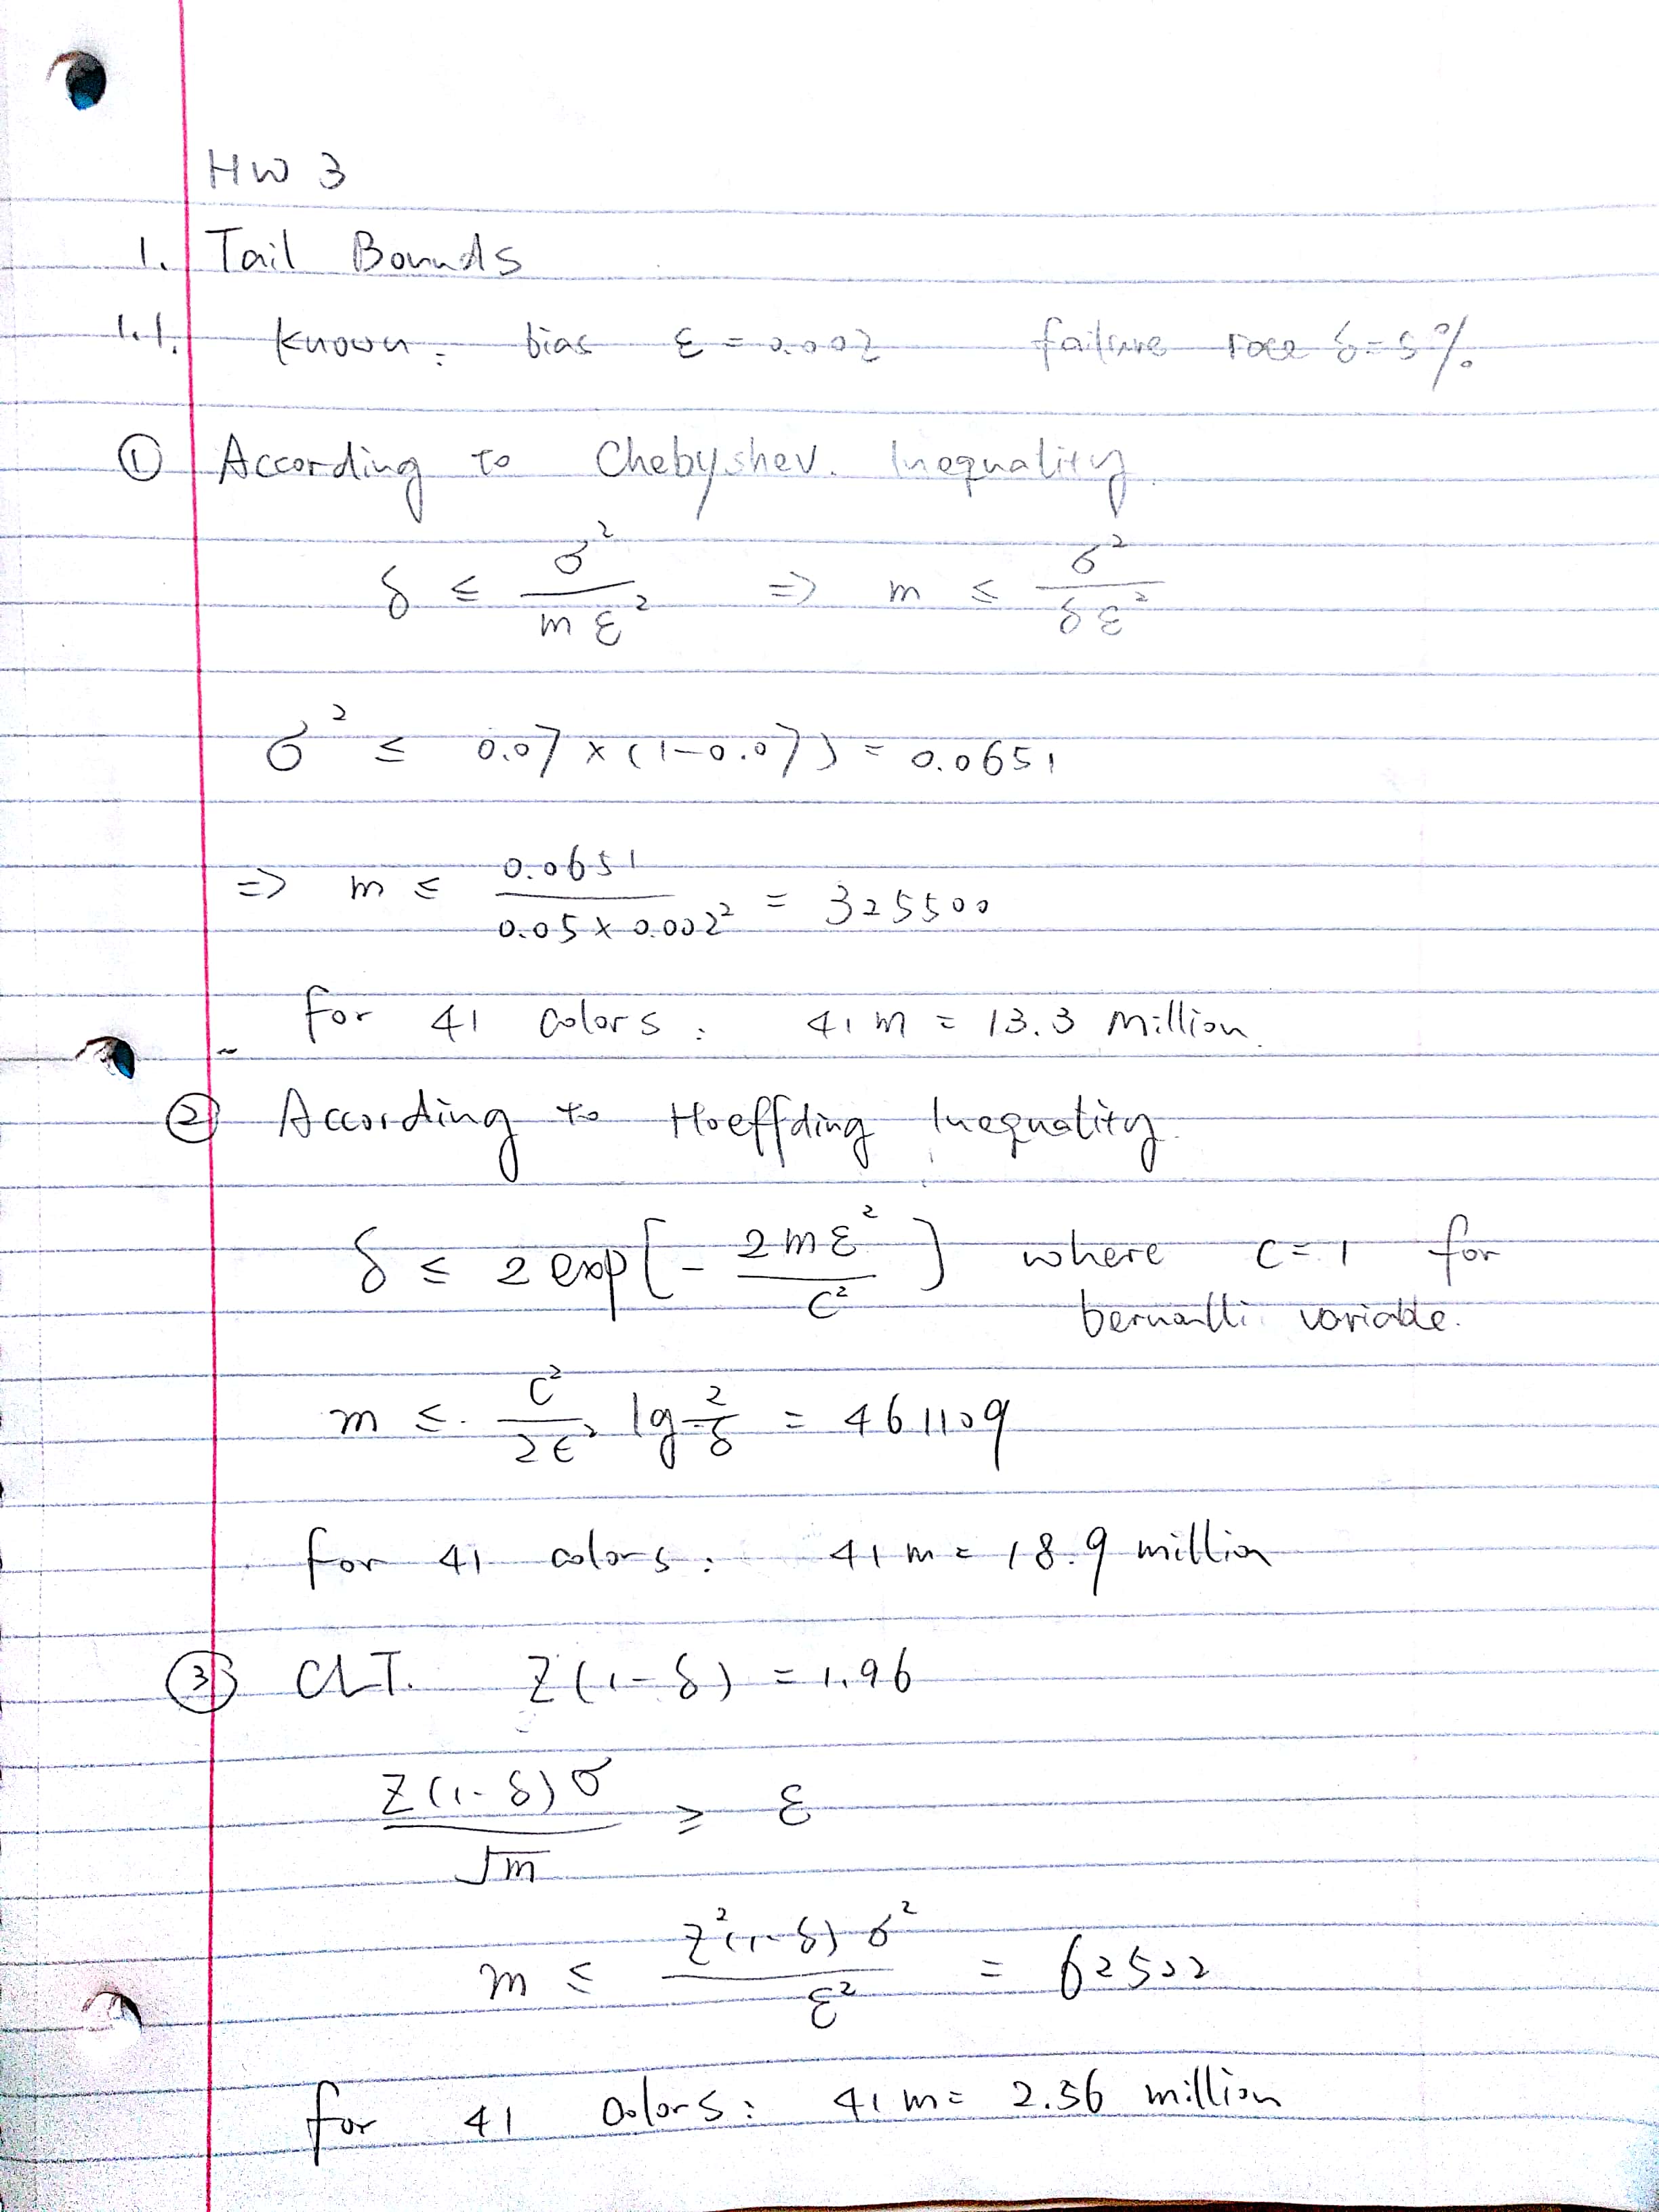 HW 3
1. Tail Bounds
1.1. Known: bias ε = 0.002 failure rate δ=5%
① According to Chebyshev. Inequality.
δ ≤ σ² / mε² => m ≤ σ² / δε²
σ² ≤ 0.07 × (1-0.07) = 0.0651
=> m ≤ 0.0651 / 0.05 × 0.002² = 325500
for 41 colors: 41 m = 13.3 million.
② According to Hoeffding Inequality.
δ ≤ 2 exp[- 2mε² / c² ] where c=1 for
bernoulli variable.
m ≤. c² / 2ε² lg 2/δ = 461109
for 41 colors: 41 m = 18.9 million
③ CLT. Z(1-δ) = 1.96
Z(1-δ)σ / √m ≥ ε
m ≤ Z²(1-δ) σ² / ε² = 62502
for 41 colors: 41 m = 2.56 million